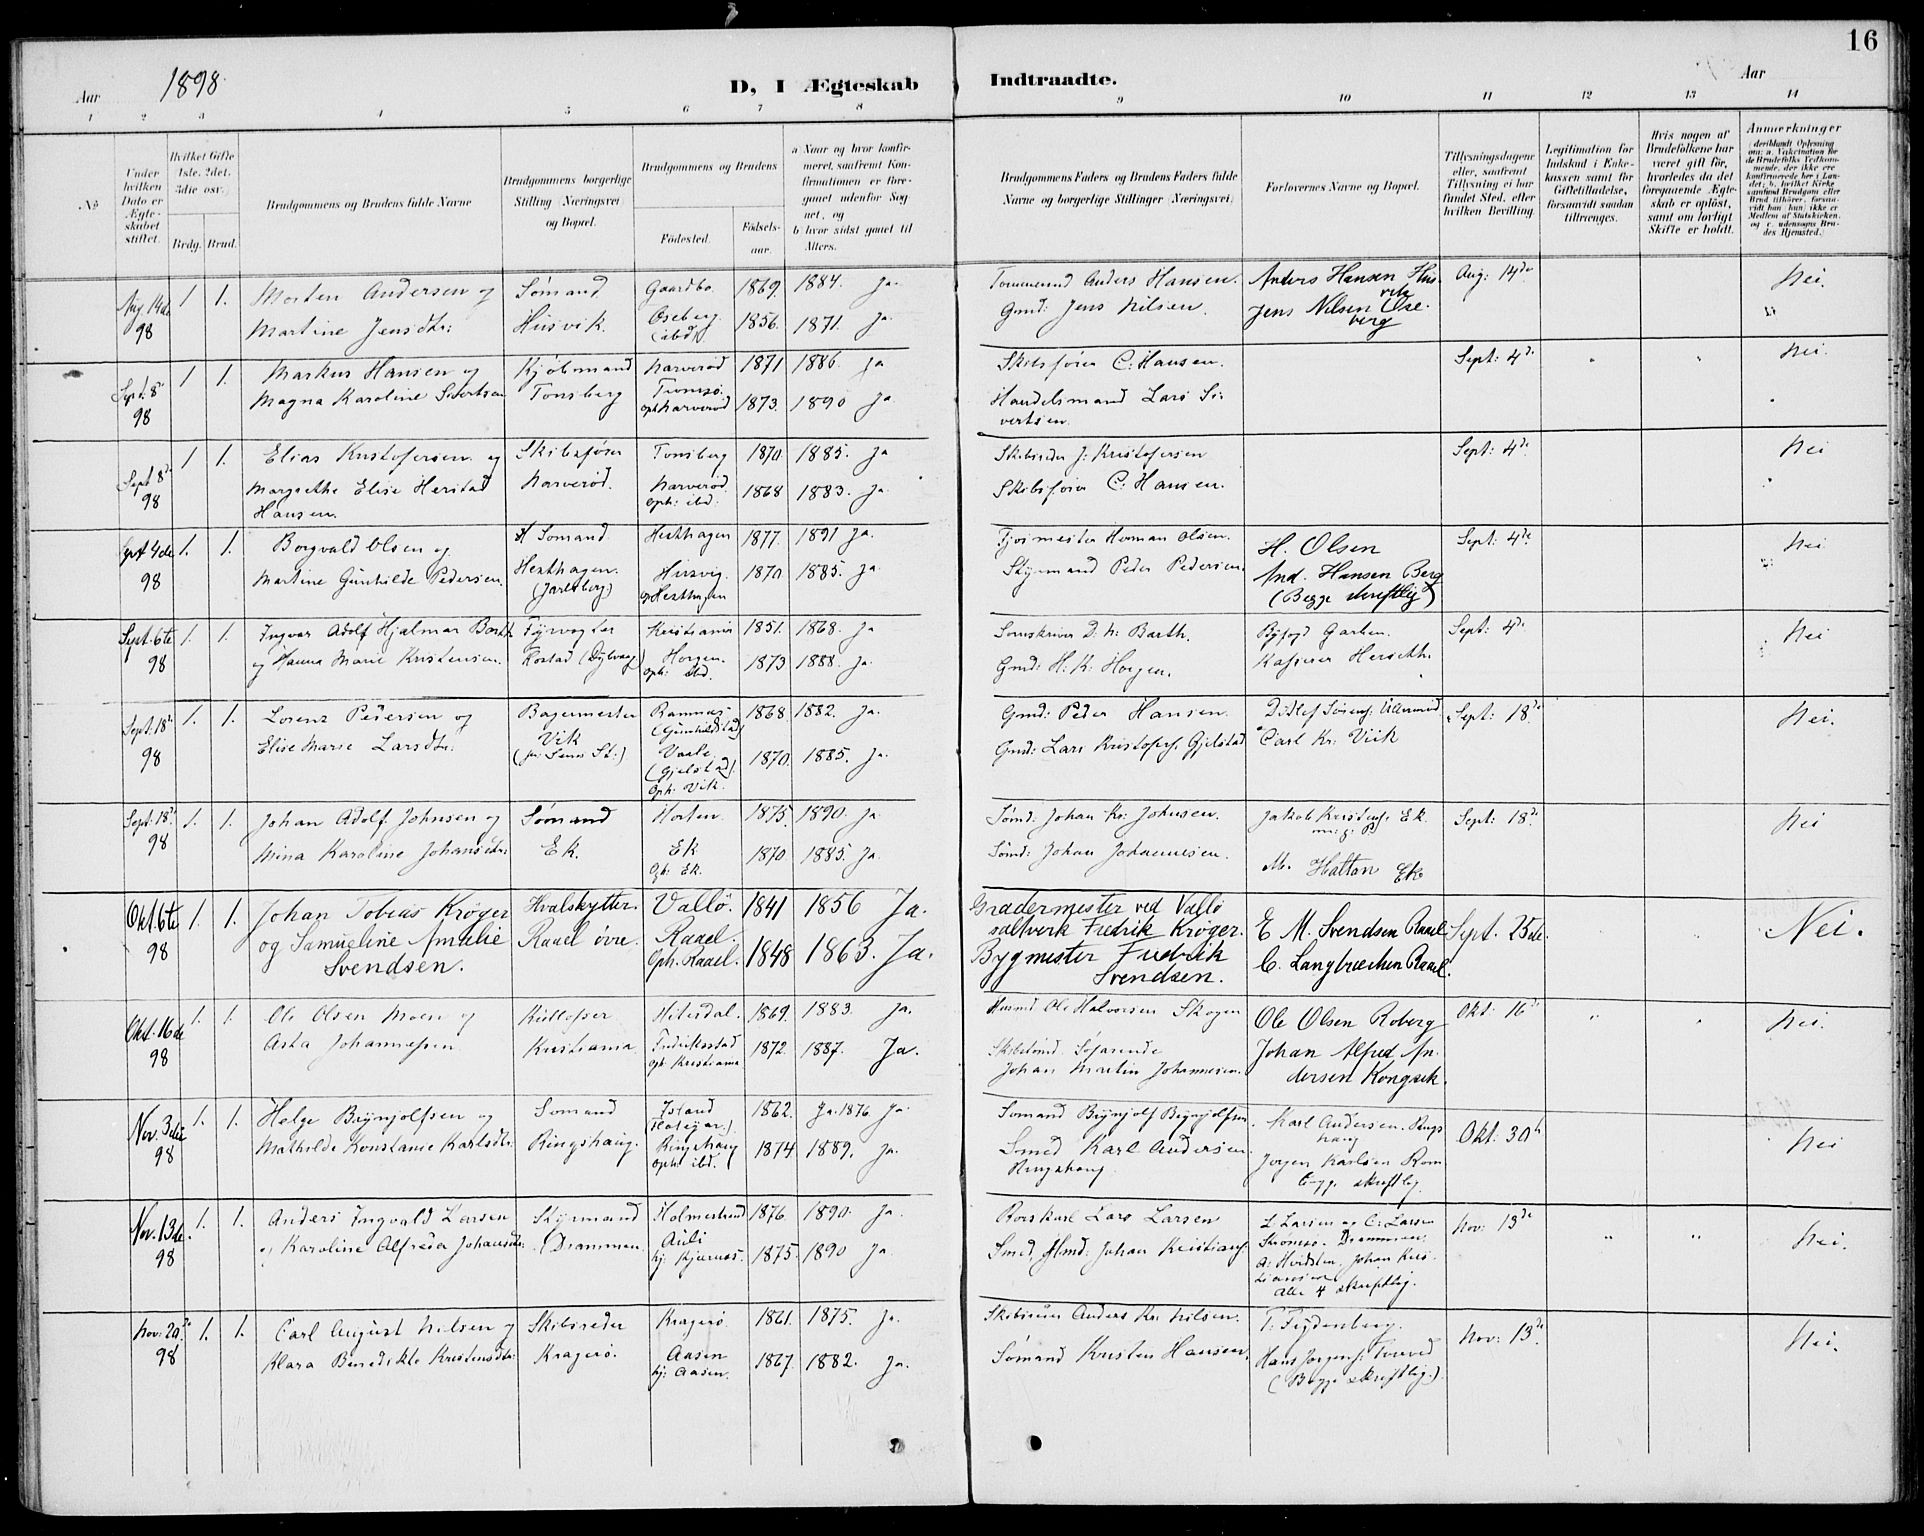 16
Aar 1898. D, I Ægteskab Indtraadte. Aar
1 2 3 4 5 6 7 8 9 10 11 12 13 14
No
Under hvilken Dato er Ægteskabet stiftet.
Hvilket Gifte 1ste, 2det, 3die osv.
Brdg. Brud.
Brudgommens og Brudens fulde Navne
Brudgommens borgerlige Stilling (Næringsvei) og Bopæl.
Brudgommens og Brudens
Fødested. Fødselsaar.
a Naar og hvor konfirmeret, saafremt Konfirmationen er foregaaet udenfor Sognet, og
b hvor sidst gaaet til Alters.
Brudgommens Faders og Brudens Faders fulde Navne og borgerlige Stillinger (Næringsvei)
Forlovernes Navne og Bopæl.
Tillysningsdagene eller, saafremt Tillysning ei har fundet Sted, efter hvilken Bevilling.
Legitimation for Indskud i Enkekassen samt for Giftetilladelse, forsaavidt saadan tiltrænges.
Hvis nogen af Brudefolkene har været gift før, hvorledes da det foregaaende Ægteskab er opløst, samt om lovligt Skifte er holdt.
Anmærkninger
Aug. 14de 98 1 1. Morten Andersen og Sømand Gaardbo. 1869. 1884. Ja. Tømmermd Anders Hansen. Anders Hansen Husvik Aug: 14de Nei.
Martine Jensdtr: Husvik. Oseberg (ibd) 1856. 1871. Ja Gmd: Jens Nilsen. Jens Nilsen Oseberg
Sept. 8de 98 1 1. Markus Hansen og Kjøbmand Narverød 1871 1886. Ja Skibsfører C. Hansen. Sept: 4de Nei.
Magna Karoline Sivertsen Tønsberg Tromsø. oph Narverød 1873. 1890 Ja Handelsmand Lars Sivertsen.
Sept 8de 98 1 1. Elias Kristofersen og Skibsfører Tønsberg 1870 1885. Ja Skibsreder J: Kristofersen Sept: 4de Nei
Margrethe Elise Herstad Hansen. Narverød. Narverød. oph: ibd. 1868 1883. Ja. Skibsfører C: Hansen.
Sept 4de 98 1. 1. Borgvald Olsen og Sømand Hesthagen 1877. 1891 Ja. Fjøsmester Herman Olsen. H. Olsen Sept: 4de Nei
Martine Gunhilde Pedersen. Hesthagen. (Jarlsberg) Husvig. op Hesthagen 1870 1885. Ja Styrmand Peder Pedersen. And. Hansen Berg (Begge skriftlig)
Sept. 6te 98 1 1. Ingvar Adolf Hjalmar Barth Fyrvogter Kristiania 1851. 1868. Ja Sorenskriver D. N: Barth. Byfogd Garben. Sept: 4de Nei
og Hanna Marie Kristensen. Horgen. oph: ibd. 1873 1888. Ja. Gmd: H: K: Horgen. Kasserer Herseth.
Sept. 18de 98 1. 1. Lorenz Pedersen og Bagermester Ramnæs (Gunhildstad) 1868. 1882. Ja. Gmd: Peder Hansen. Ditlef Sørens. Sept: 18de Nei.
Elise Marie Larsdtr: Vik Vaale (Gjelstad). Oph: Vik. 1870. 1885. Ja. Gmd: Lars Kristofers. Gjelstad Carl Kr: Viik
Sept. 18de 98 1. 1. Johan Adolf Johnsen og Sømand Horten. 1875. 1890. Ja. Sømd: Johan Kr: Johnsen. Jakob Kristens. Ek. m. f. P. Sept: 18de Nei
Mina Karoline Johansdtr: Ek. Ek Oph: Ek. 1870 1885. Ja. Sømd: Johan Johannesen. M. Hattan Ek
Okt. 6te 98 1. 1. Johan Tobias Krøger Hvalskytter. Vallö. 1841 1856 Ja. Gradermester ved Vallö saltverk Fredrik Krøger. E M. Svendsen Raael Sept. 25de. Nei.
og Samueline Amalie Svendsen. Raael øvre. Raael. Oph. Raael. 1848 1863. Ja. Bygmester Fredrik Svendsen. C. Langbrækken Raael.
Okt. 16de 98 1. 1. Ole Olsen Moen og Kullosser Hitterdal. 1869. 1883. Ja. Husmd. Ole Halvorsen Skogen Ole Olsen Roberg Okt: 16de Nei.
Asta Johannessen Kristiania. Fredriksstad oph Kristiania 1872. 1887. Ja. Skibstømd. Søfarende Johan Martin Johannesen. Johan Alfred Andersen Kongsek.
Nov. 3die 98 1. 1. Helge Brynjolfsen og Sømand Island 1862. Ja. 1876 Ja. Sømand Brynjolf Brynjolfsen. Karl Andersen. Ringshaug Okt: 30te Nei
Mathilde Konstanse Karlsdtr: Ringshaug. Ringshaug oph: ibd. 1874. 1889. Ja. Smed Karl Andersen Ringshaug Jørgen Karlsen Rom Begge skriftlig.
Nov. 13de. 98 1. 1. Anders Ingvald Larsen Styrmand Holmestrand 1876. 1890. Ja. Lars Larsen L Larsen og C: Larsen Nov: 13de Nei.
og Karoline Alfreda Johansdtr. (Drammen Auli hj: Kjærnæs. 1875. 1890 Ja Smed, Hmd: Johan Kristians. Strømsø. Drammen. A: Hvidsten. Johan Kristiansen Alle 4 skriftlig.
Nov: 20de 98 1. 1. Carl August Nilsen og Skibsreder Kragerø. 1861. 1875. Ja. Skibsreder Anders Kr: Nilsen. T: Frydenberg. Nov: 13de Nei.
Klara Benedikte Kristensdtr: Kragerø. Aasen hj: Aasen. 1867. 1882. Ja. Sømand Kristen Hansen. Hans Jørgens: Tverved (Begge skriftlig.)